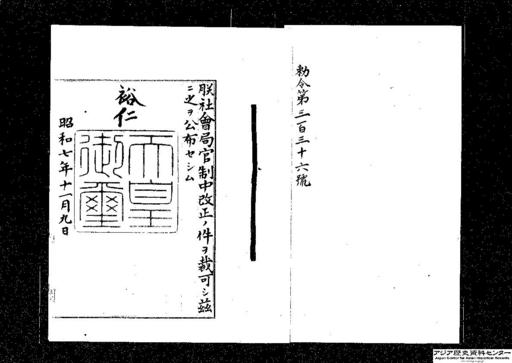 勅令第三百三十六號
朕社會局官制中改正ノ件ヲ裁可シ茲
ニ之ヲ公布セシム
裕仁
天皇
御璽
昭和七年十一月九日
アジア歴史資料センター
Japan Center for Asian Historical Records